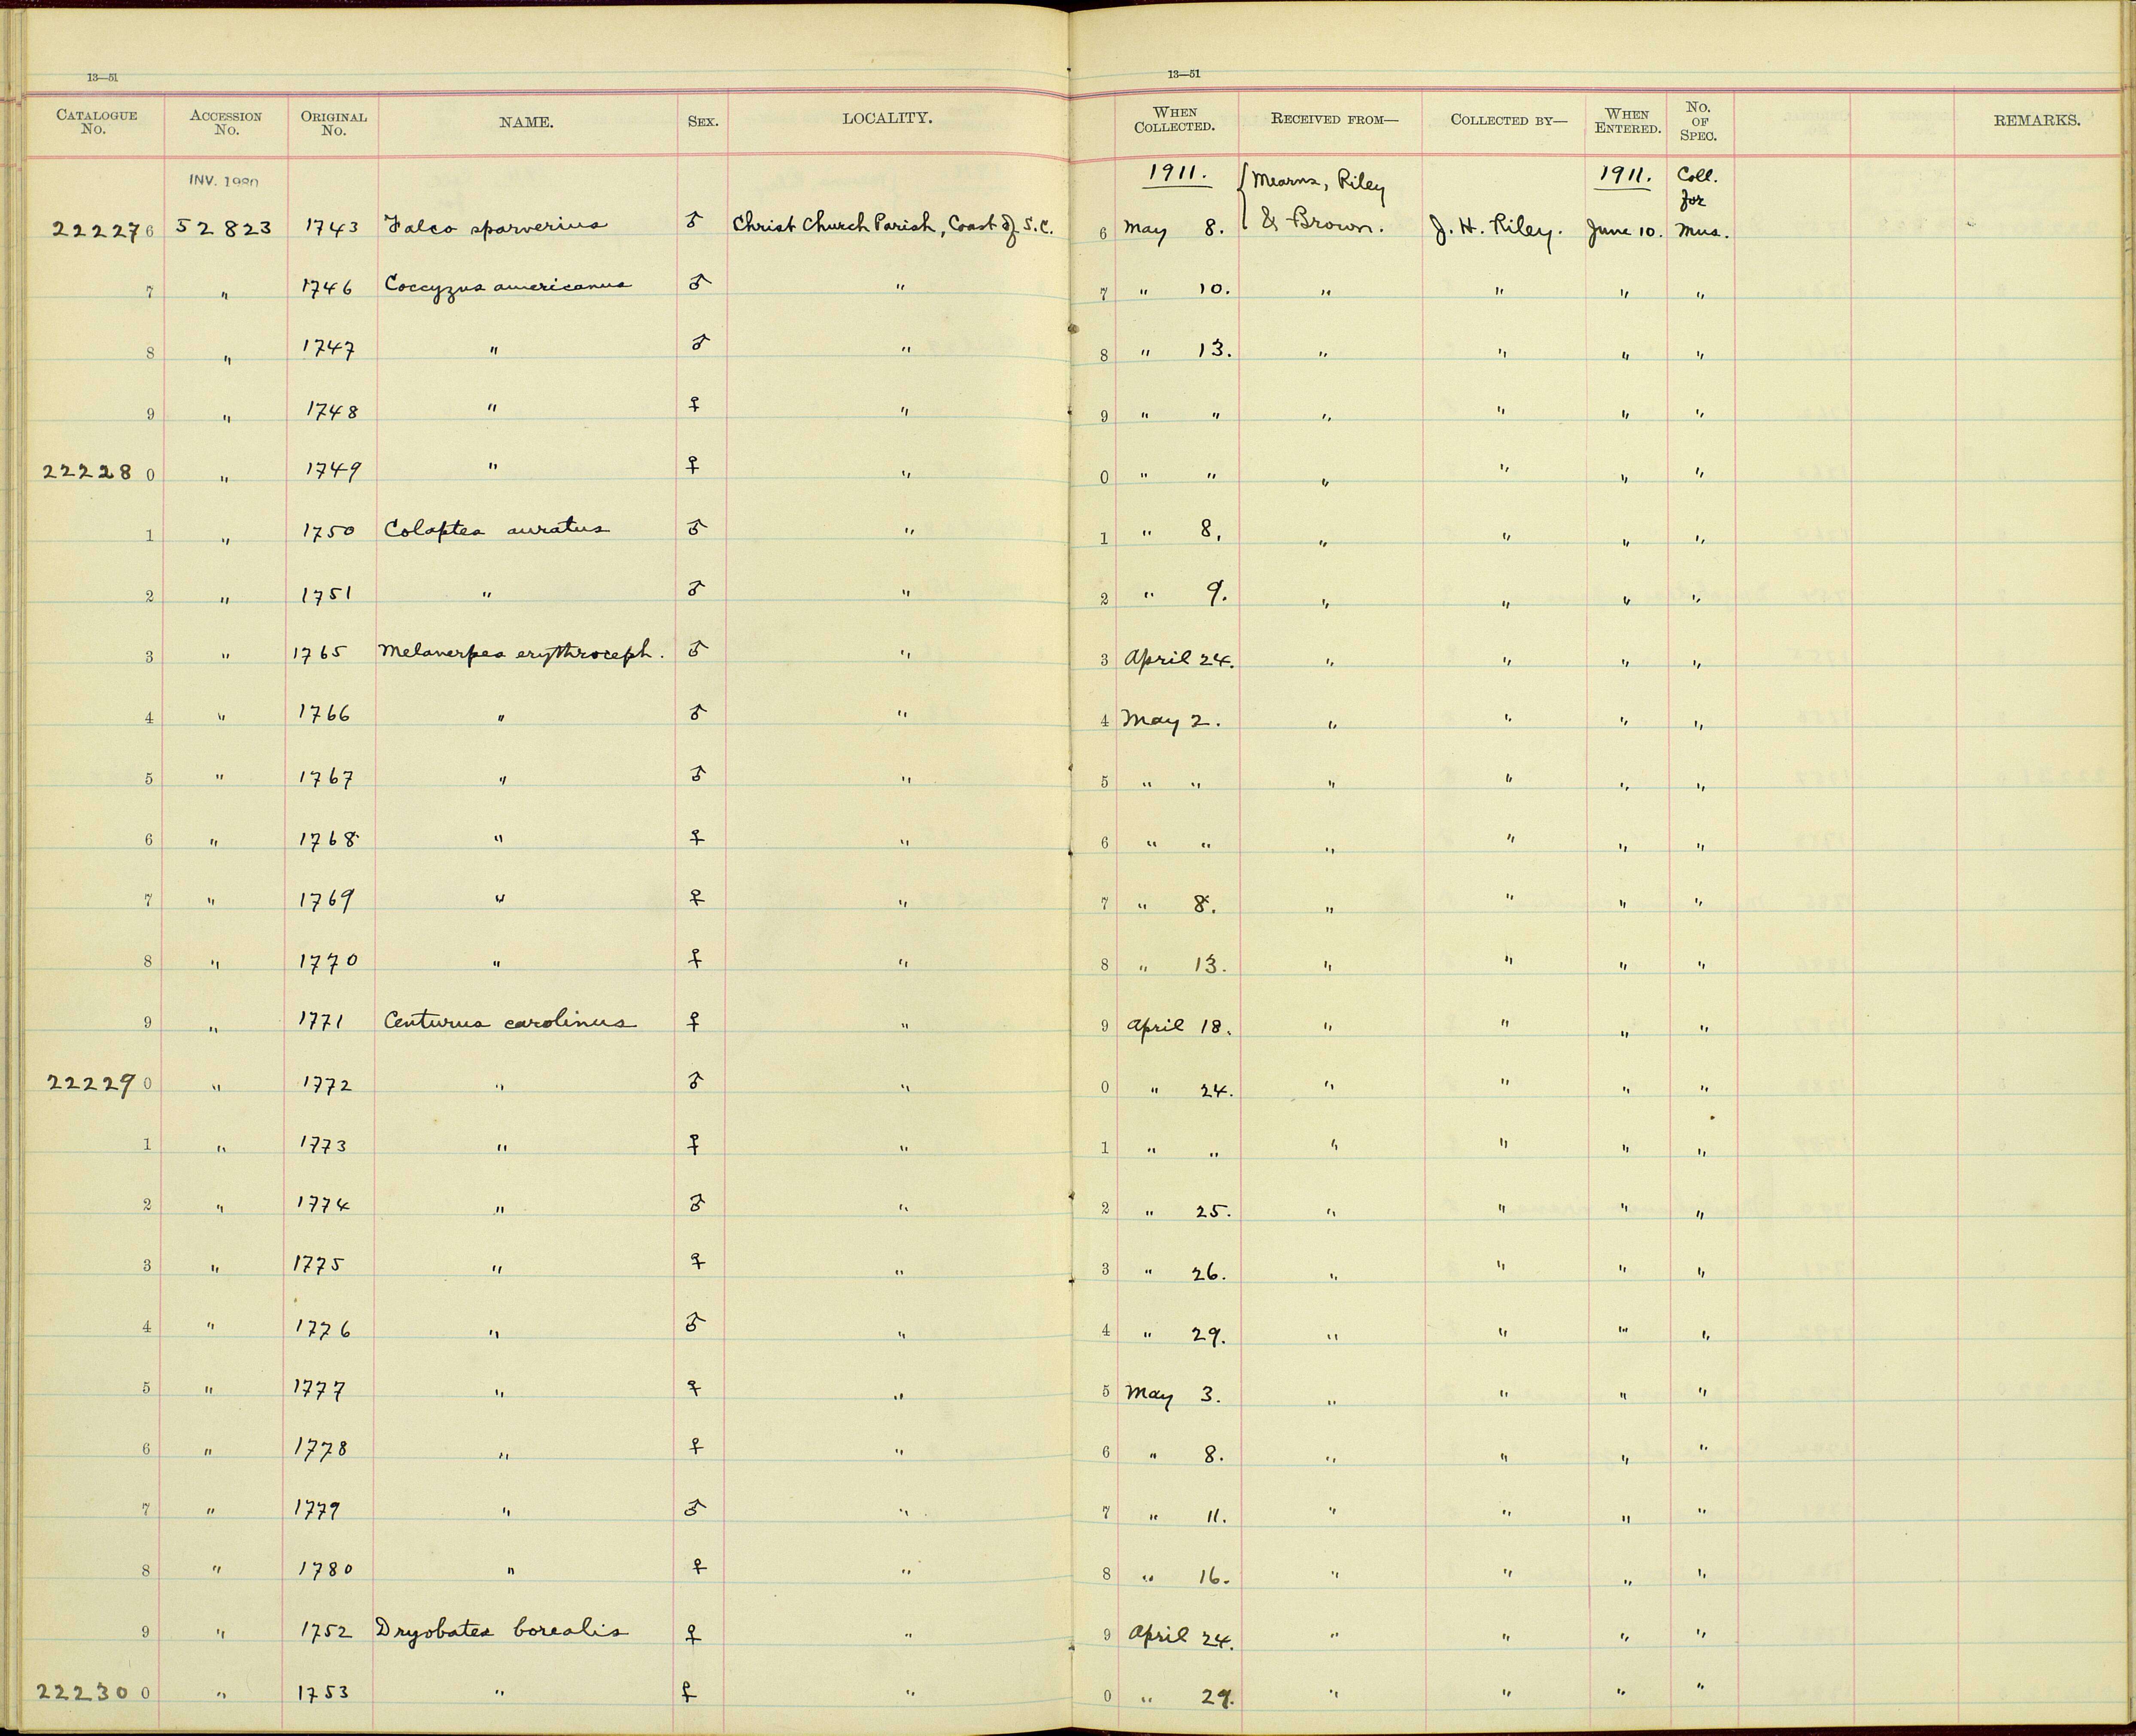 13—51 13—51
CATALOGUE No. ACCESSION No. ORIGINAL No. NAME. SEX. LOCALITY. WHEN COLLECTED. RECEIVED FROM— COLLECTED BY— WHEN ENTERED. No. OF SPEC. REMARKS.
INV. 1980 1911. { Mearns, Riley 1911. Coll. for
222276 52823 1743 Falco sparverius ♂ Christ Church Parish, Coast of S.C. 6 May 8. & Brown. J. H. Riley. June 10. Mus.
7 " 1746 Coccyzus americanus ♂ " 7 " 10. " " " "
8 " 1747 " ♂ " 8 " 13. " " " "
9 " 1748 " ♀ " 9 " " " " " "
222280 " 1749 " ♀ " 0 " " " " " "
1 " 1750 Colaptes auratus ♂ " 1 " 8. " " " "
2 " 1751 " ♂ " 2 " 9. " " " "
3 " 1765 Melanerpes erythroceph. ♂ " 3 April 24. " " " "
4 " 1766 " ♂ " 4 May 2. " " " "
5 " 1767 " ♂ " 5 " " " " " "
6 " 1768 " ♀ " 6 " " " " " "
7 " 1769 " ♀ " 7 " 8. " " " "
8 " 1770 " ♀ " 8 " 13. " " " "
9 " 1771 Centurus carolinus ♀ " 9 April 18. " " " "
222290 " 1772 " ♂ " 0 " 24. " " " "
1 " 1773 " ♀ " 1 " " " " " "
2 " 1774 " ♂ " 2 " 25. " " " "
3 " 1775 " ♀ " 3 " 26. " " " "
4 " 1776 " ♂ " 4 " 29. " " " "
5 " 1777 " ♀ " 5 May 3. " " " "
6 " 1778 " ♀ " 6 " 8. " " " "
7 " 1779 " ♂ " 7 " 11. " " " "
8 " 1780 " ♀ " 8 " 16. " " " "
9 " 1752 Dryobates borealis ♀ " 9 April 24. " " " "
222300 " 1753 " ♀ " 0 " 29. " " " "